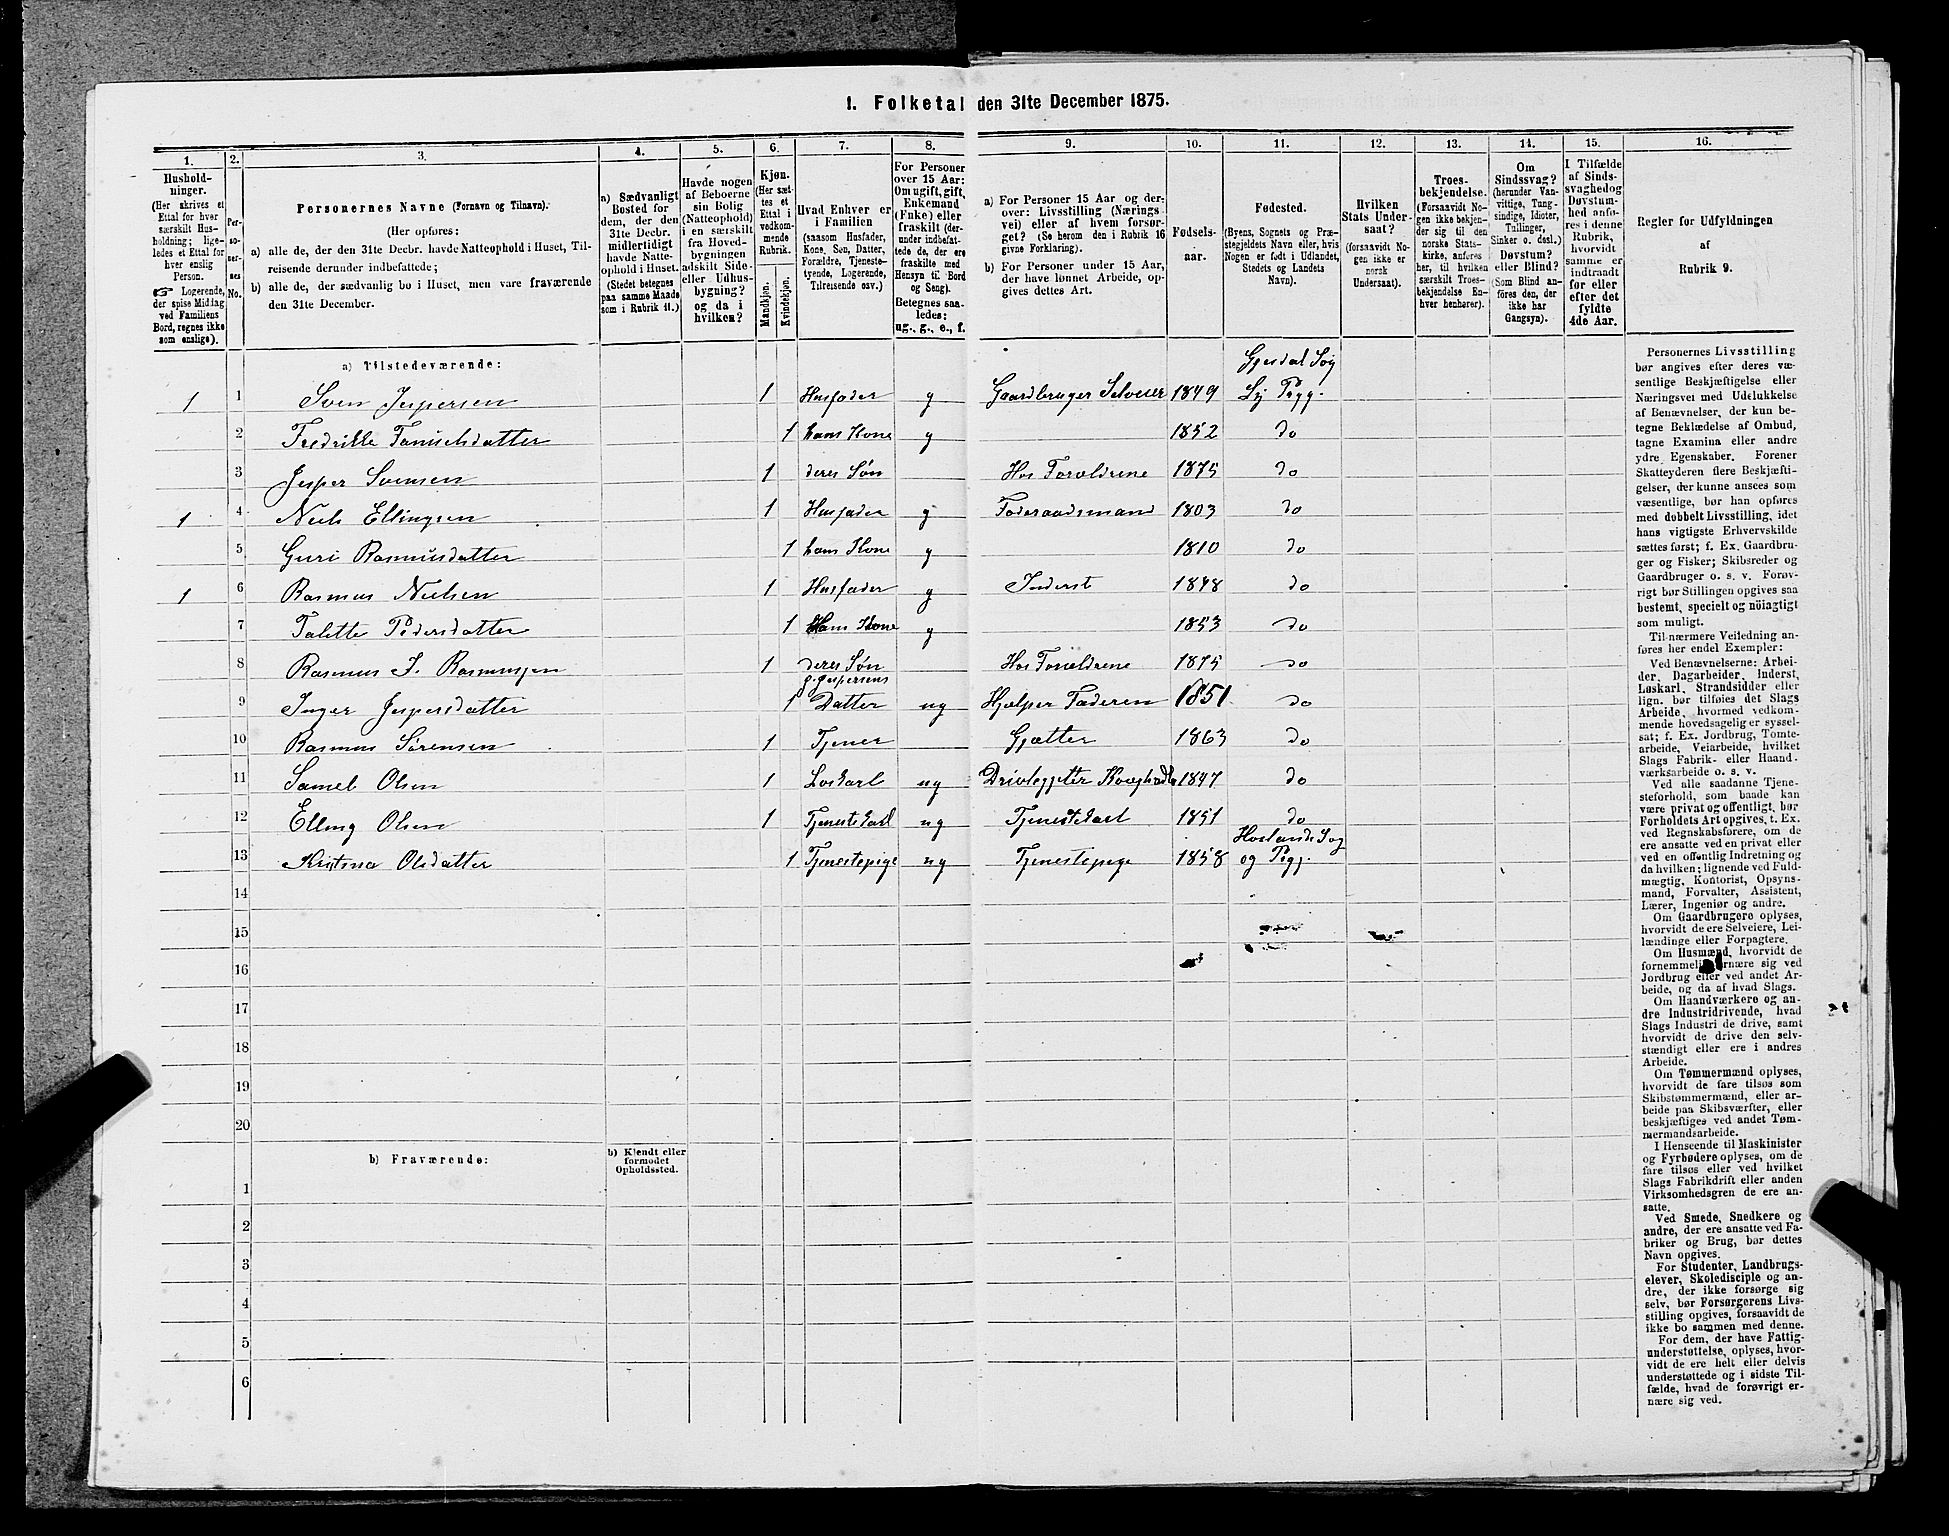 1. Folketal den 31te December 1875.
1.
2.
3.
4.
5.
6.
7.
8.
9.
10.
11.
12.
13.
14.
15.
16.
Hushold-
ninger.
(Her skrives et
Ettal for hver
særskilt Hus-
holdning; lige-
ledes et Ettal for
hver enslig
Person.
☞ Logerende,
der spise Middag
ved Familiens
Bord, regnes ikke
som enslige).
Per-
so-
ner-
nes
No.
Personernes Navne (Fornavn og Tilnavn).
(Her opføres:
a) alle de, der den 31te Decbr. havde Natteophold i Huset, Til-
reisende derunder indbefattede;
b) alle de, der sædvanlig bo i Huset, men vare fraværende
den 31te December.
a) Sædvanligt
Bosted for
dem, der den
31te Decbr.
midlertidigt
havde Natte-
ophold i Huset.
(Stedet betegnes
paa samme Maade
som i Rubrik 11.)
Havde nogen
af Beboerne
sin Bolig
(Natteophold)
i en særskilt
fra Hoved-
bygningen
adskilt Side-
eller Udhus-
bygning?
og da i
hvilken?
Kjøn.
(Her sæt-
tes et
Ettal i
vedkom-
mende
Rubrik.
Mandkjøn.
Kvindekjøn.
Hvad Enhver er
i Familien
(saasom Husfader,
Kone, Søn, Datter,
Forældre, Tjeneste-
tyende, Logerende,
Tilreisende osv.)
For Personer
over 15 Aar:
Om ugift, gift,
Enkemand
(Enke) eller
fraskilt (der-
under indbefat-
tede de, der ere
fraskilte med
Hensyn til Bord
og Seng).
Betegnes saa-
ledes:
ug., g., e., f.
a) For Personer 15 Aar og der-
over: Livsstilling (Nærings-
vei) eller af hvem forsør-
get? (Se herom den i Rubrik 16
givne Forklaring).
b) For Personer under 15 Aar,
der have lønnet Arbeide, op-
gives dettes Art.
Fødsels-
aar.
Fødested.
(Byens, Sognets og Præ-
stegjeldets Navn eller, hvis
Nogen er født i Udlandet,
Stedets og Landets
Navn).
Hvilken
Stats Under-
saat?
(forsaavidt No-
gen ikke er
norsk
Undersaat).
Troes-
bekjendelse.
(Forsaavidt No-
gen ikke bekjen-
der sig til den
norske Stats-
kirke, anføres
her, til hvilken
særskilt Troes-
bekjendelse En-
hver henhører).
Om
Sindssvag?
(herunder Van-
vittige, Tung-
sindige, Idioter,
Tullinger,
Sinker o. desl.)
Døvstum?
eller Blind?
(Som Blind an-
føres den, der
ikke har
Gangsyn).
I Tilfælde
af Sinds-
svaghed og
Døvstum-
hed anfø-
res i denne
Rubrik,
hvorvidt
samme er
indtraadt
før eller
efter det
fyldte
4de Aar.
Regler for Udfyldningen
af
Rubrik 9.
a) Tilstedeværende:
Gjesdal Sog
1 1 Sven Jespersen 1 Husfader g Gaardbruger Selveier 1849 Lÿ Pgg.
2 Fredrikke Tønnesdatter 1 hans Kone g 1852 do
3 Jesper Svensen 1 deres Søn Hos Foræ­ldrene 1875 do
1 4 Niels Ellingsen 1 Husfader g Føderaadsmand 1803 do
5 Guri Rasmusdatter 1 hans Kone g 1810 do
1 6 Rasmus Nielsen 1 Husfader g Inderst 1848 do
7 Talette Pedersdatter 1 Hans Kone g 1853 do
8 Rasmus I. Rasmussen 1 deres Søn Hos Forældrene 1875 do
9 Inger Jespersdatter 1 Jespersens Datter ug Hjælper Faderen 1851 do
10 Rasmus Sørensen 1 Tjener Gjætter 1863 do
11 Samel Olsen 1 Løskarl ug 1847 do
12 Elling Olsen 1 Tjenestekarl ug Tjenestekarl 1851 do
Høilands Sog
13 Kristina Olsdatter 1 Tjenestepige ug Tjenestepige 1858 og Pgg.
14
15
16
17
18
19
20
b) Fraværende:
b) Kjendt eller
formodet
Opholdssted.
1
2
3
4
5
6
Personernes Livsstilling
bør angives efter deres væ-
sentlige Beskjæftigelse eller
Næringsvei med Udelukkelse
af Benævnelser, der kun be-
tegne Beklædelse af Ombud,
tagne Examina eller andre
ydre Egenskaber. Forener
Skatteyderen flere Beskjæfti-
gelser, der kunne ansees som
væsentlige, bør han opføres
med dobbelt Livsstilling, idet
hans vigtigste Erhvervskilde
sættes først; f. Ex. Gaardbru-
ger og Fisker; Skibsreder og
Gaardbruger o. s. v. Forøv-
rigt bør Stillingen opgives saa
bestemt, specielt og nöiagtigt
som muligt.
Til nærmere Veiledning an-
føres her endel Exempler:
Ved Benævnelserne: Arbei-
der, Dagarbeider, Inderst,
Løskarl, Strandsidder eller
lign. bør tilføies det Slags
Arbeide, hvormed vedkom-
mende hovedsagelig er syssel-
sat; f. Ex. Jordbrug, Tomte-
arbeide, Veiarbeide, hvilket
Slags Fabrik- eller Haand-
værksarbeide o. s. v.
Ved alle saadanne Tjene-
steforhold, som baade kan
være privat og offentligt, bør
Forholdets Art opgives, t. Ex.
ved Regnskabsførere, om de
ere ansatte ved en privat eller
ved en offentlig Indretning og
da hvilken; lignende ved Fuld-
mægtig, Kontorist, Opsyns-
mand, Forvalter, Assistent,
Lærer, Ingeniør og andre.
Om Gaardbrugere oplyses,
hvorvidt de ere Selveiere, Lei-
lændinge eller Forpagtere.
Om Husmænd, hvorvidt de
fornemmelig ernære sig ved
Jordbrug eller ved andet Ar-
beide, og da af hvad Slags.
Om Haandværkere og an-
dre Industridrivende, hvad
Slags Industri de drive, samt
hvorvidt de drive den selv-
stændigt eller ere i andres
Arbeide.
Om Tømmermænd oplyses,
hvorvidt de fare tilsøs som
Skibstømmermænd, eller ar-
beide paa Skibsværfter, eller
beskjæftiges ved andet Tøm-
mermandsarbeide.
I Henseende til Maskinister
og Fyrbødere oplyses, om de
fare tilsøs eller ved hvilket
Slags Fabrikdrift eller anden
Virksomhedsgren de ere an-
satte.
Ved Smede, Snedkere og
andre, der ere ansatte ved Fa-
briker og Brug, bør dettes
Navn opgives.
For Studenter, Landbrugs-
elever, Skoledisciple og an-
dre, der ikke forsørge sig
selv, bør Forsørgerens Livs-
stilling opgives, forsaavidt de
ikke bo sammen med denne.
For dem, der have Fattig-
understøttelse, oplyses, hvor-
vidt de ere helt eller delvis
understøttede og i sidste Til-
fælde, hvad de forøvrigt er-
nære sig ved.